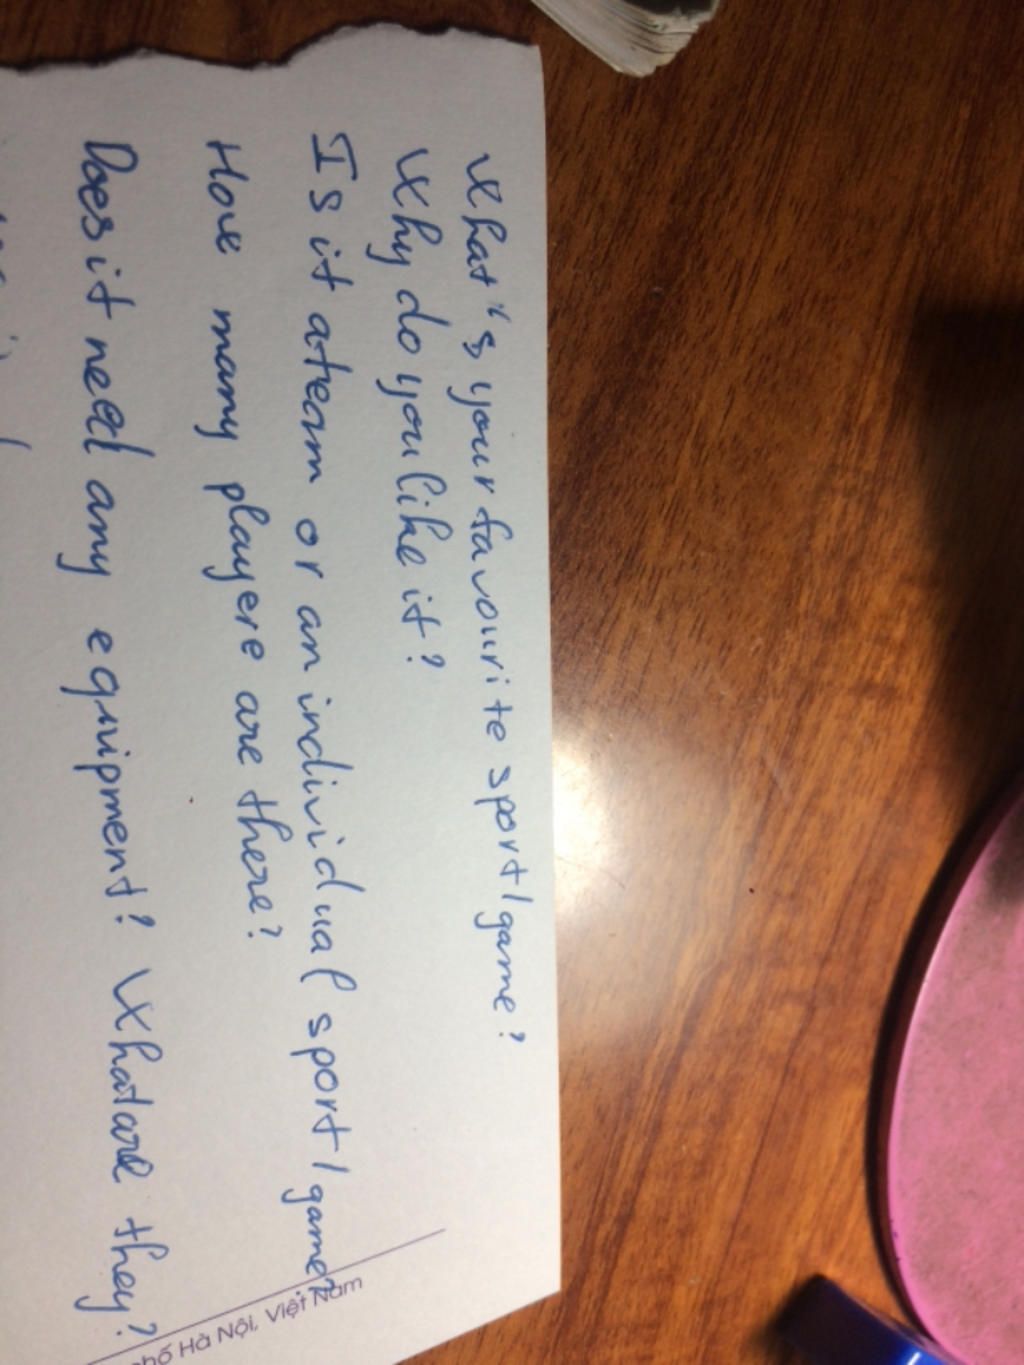 What's your favourite sport/game?
Why do you like it?
Is it a team or an individual sport/game?
How many playere are there?
Does it need any equipment? What are they?
phố Hà Nội, Việt Nam